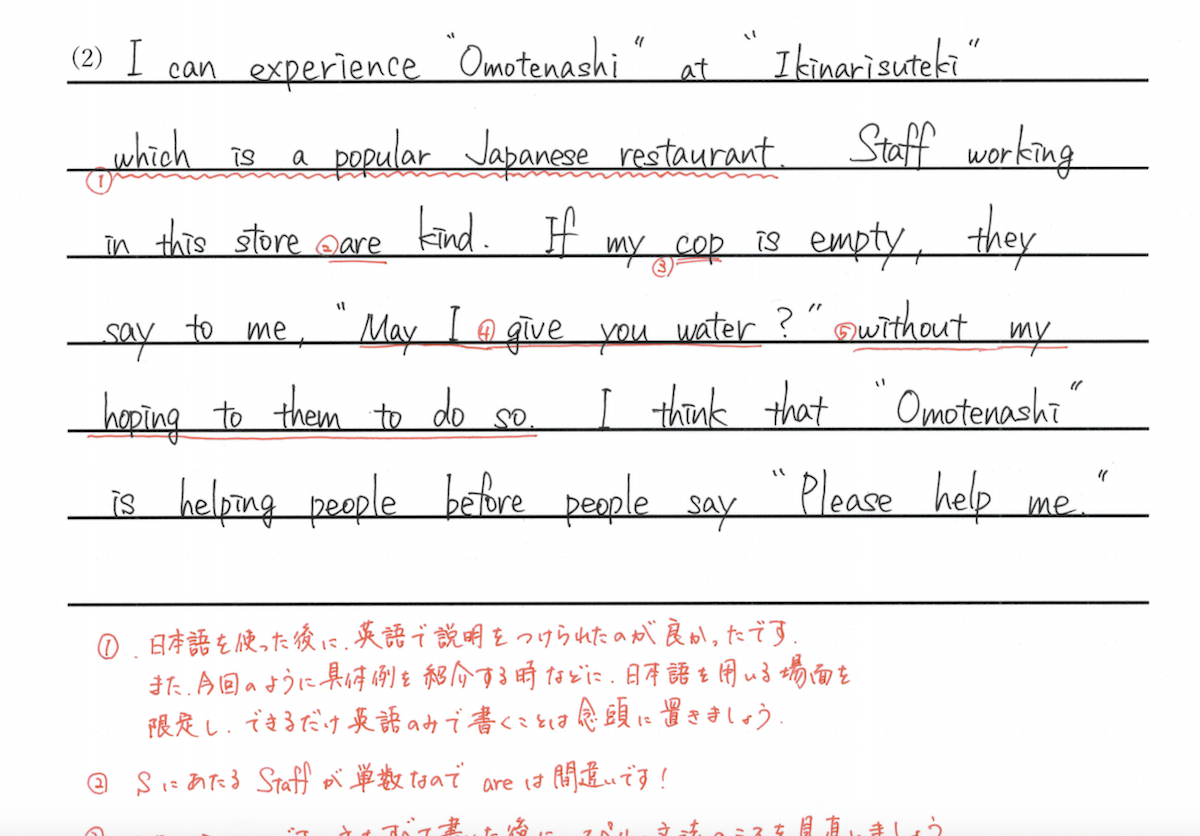 (2) I can experience "Omotenashi" at "Ikinarisuteki"
①which is a popular Japanese restaurant. Staff working
in this store ②are kind. If my ③cop is empty, they
say to me, "May I ④give you water?" ⑤without my
hoping to them to do so. I think that "Omotenashi"
is helping people before people say "Please help me."
① 日本語を使った後に、英語で説明をつけられたのが良かったです.
また、今回のように具体例を紹介する時などに、日本語を用いる場面を
限定し、できるだけ英語のみで書くことは念頭に置きましょう.
② Sにあたる Staff が単数なので are は間違いです!